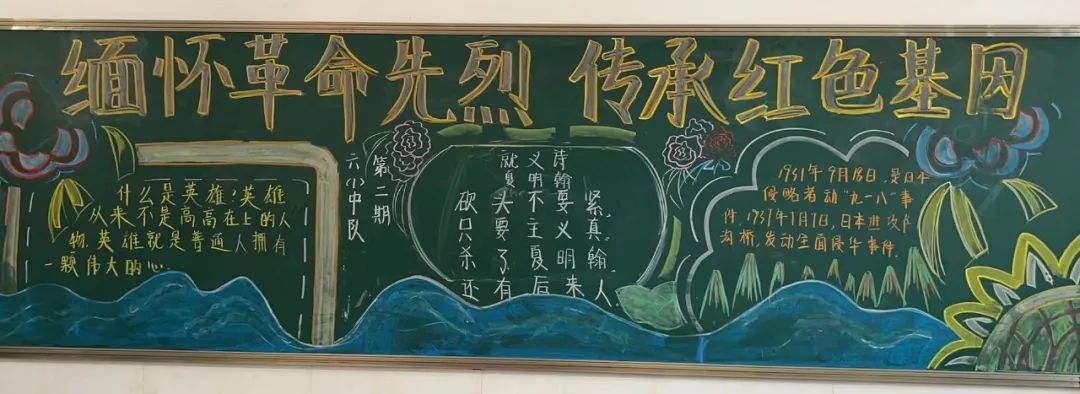 缅怀革命先烈 传承红色基因
什么是英雄?英雄
从来不是高高在上的人
物,英雄就是普通人拥有
一颗伟大的心.
第二期
六(1)中队
就义诗
夏明翰
砍头不要紧,
只要主义真,
杀了夏明翰,
还有后来人
1931年9月18日,是日本
侵略者动"九一八"事
件,1937年7月7日,日本进攻卢
沟桥,发动全面侵华事件.